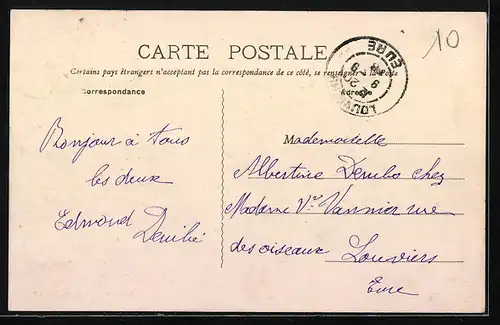 CARTE POSTALE
Certains pays étrangers n'acceptant pas la correspondance de ce côté, se renseigner à la Poste
Correspondance
Adresse
LOUVIERS EURE
10
Bonjour à tous
les deux
Edmond
Mademoiselle
Albertine chez
Madame Vve Vannier rue
des oiseaux Louviers
Eure